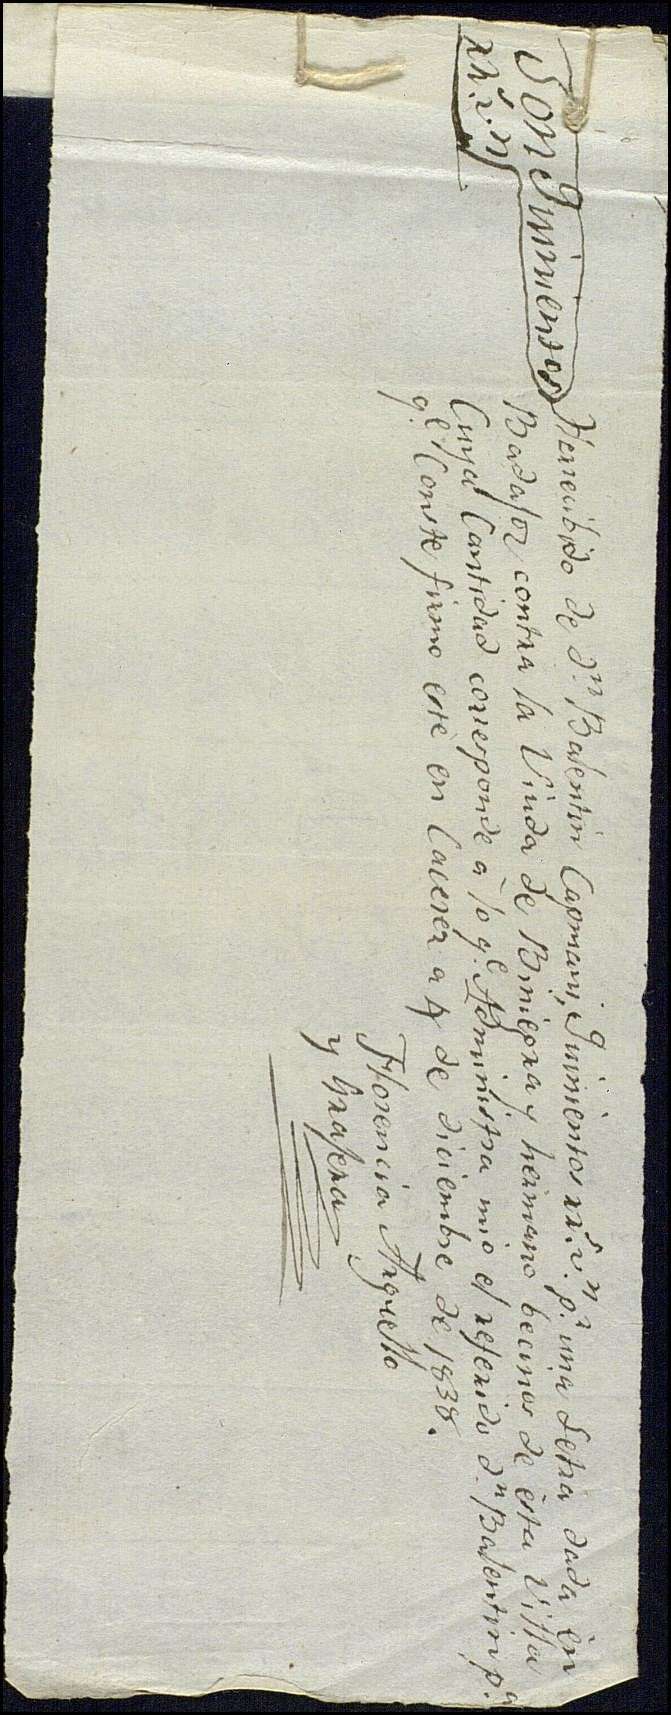 Son Quinientos
rr.s v.n
Herrecibido de d.n Balentin Capmani, Quinientos rr.s v.n p.r una Letra dada en
Badajoz contra la Viuda de Biniegra y hermano becinos de esta Villa
Cuya Cantidad corresponde à lo q.e Administra mio el referido d.n Balentin p.a
q.e Conste firmo este en Caceres a 4 de diciembre de 1838.
Florencia Arguello
y Grafera